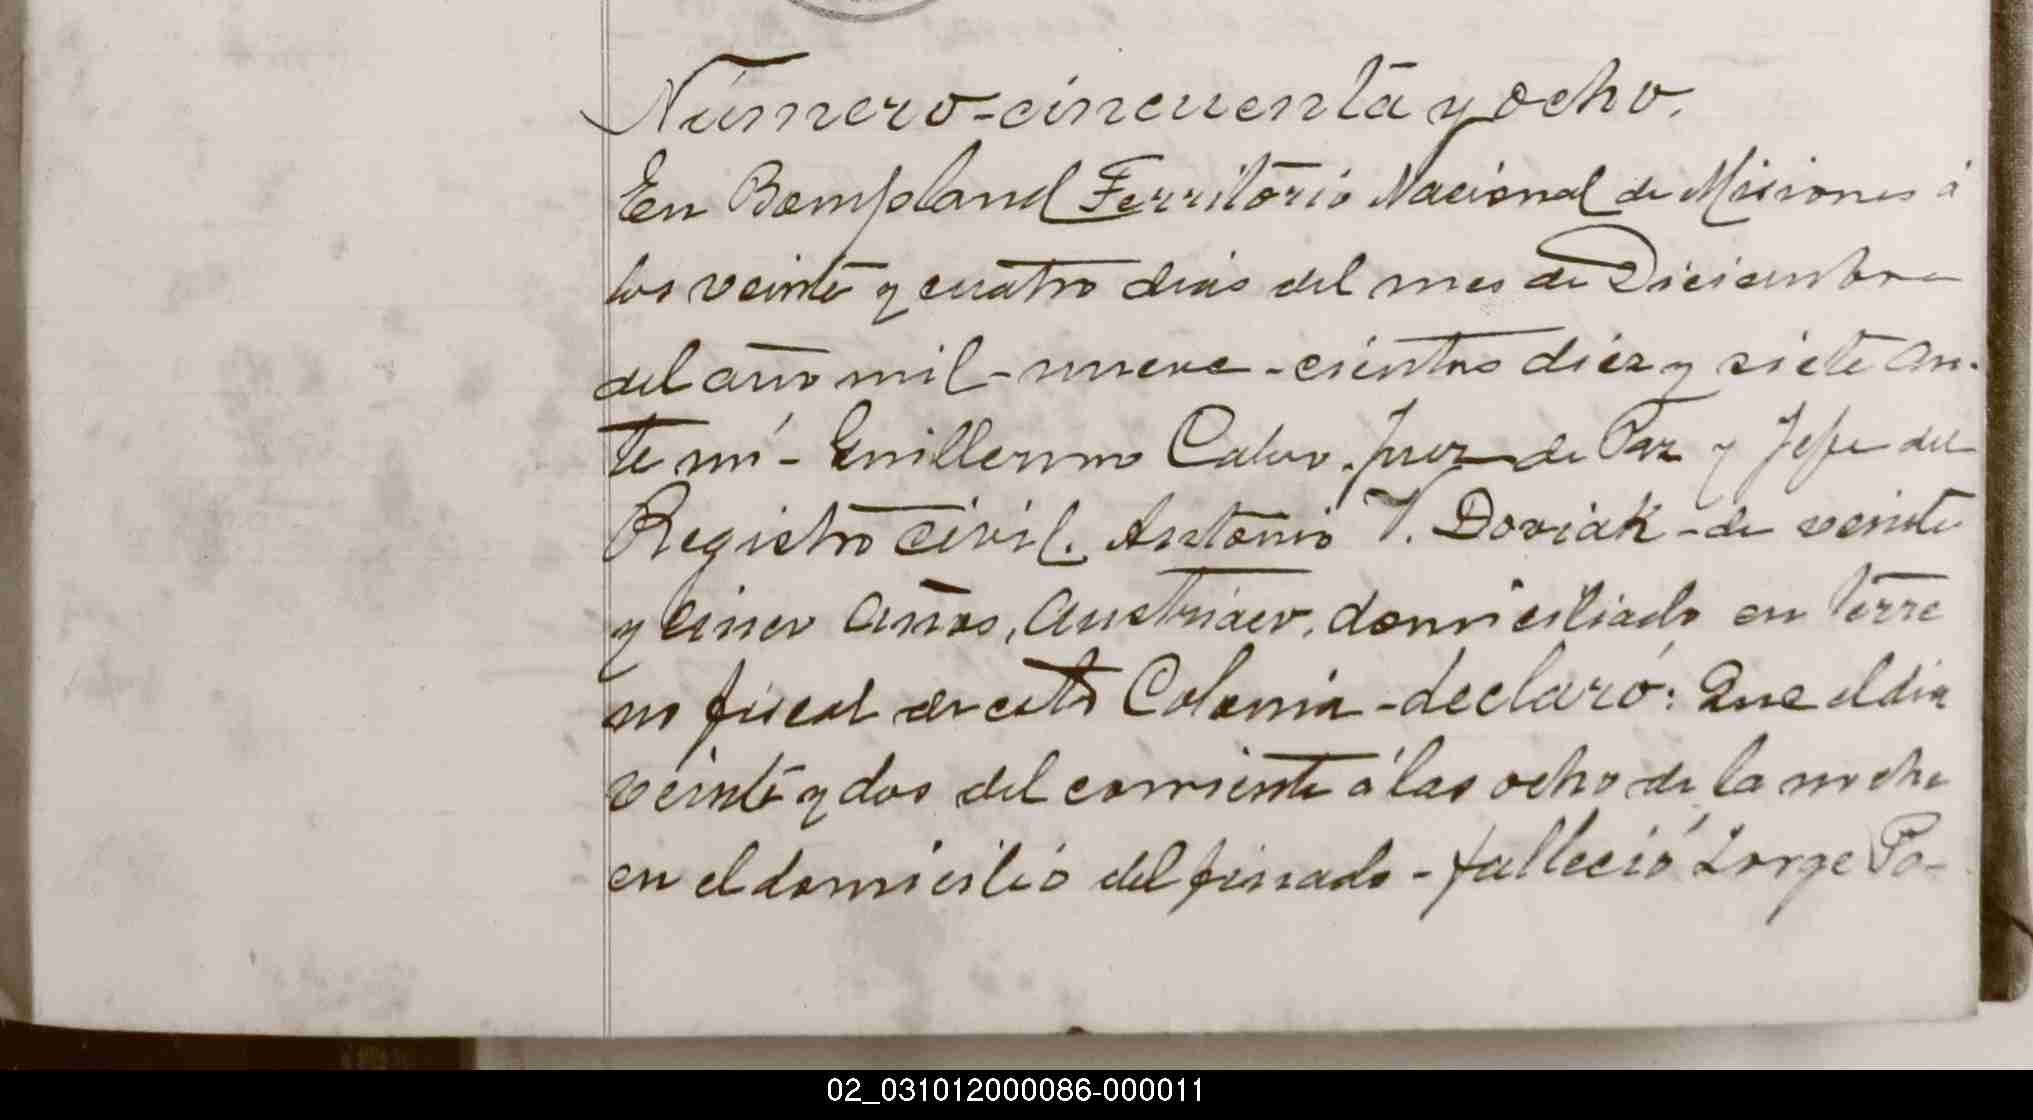 Número-cincuenta y ocho.
En Bompland Territorio Nacional de Misiones á
los veinte y cuatro dias del mes de Diciembre
del año mil-nueve-cientos diez y siete an-
te mí-Guillermo Calvo. Juez de Paz y Jefe del
Registro Civil. Antonio V. Doviak-de veinte
y cinco años, Austriaco, domiciliado en terre
no fiscal de esta Colonia-declaró: Que el dia
veinte y dos del corriente á las ocho de la noche
en el domicilio del finado-falleció Jorge Po-
02_031012000086-000011